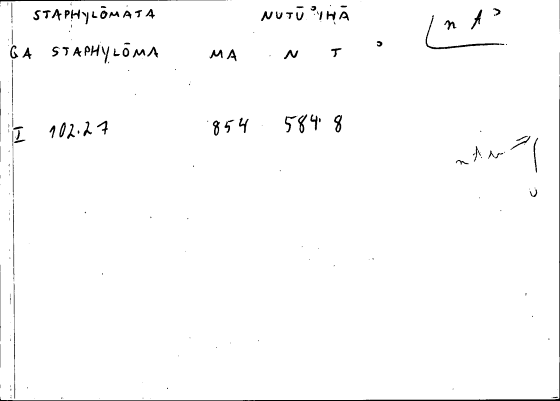 STAPHYLŌMATA NUTŪʾIHĀ n t ʾ
GA STAPHYLŌMA MA N T ʾ
I 102.27 854 584.8